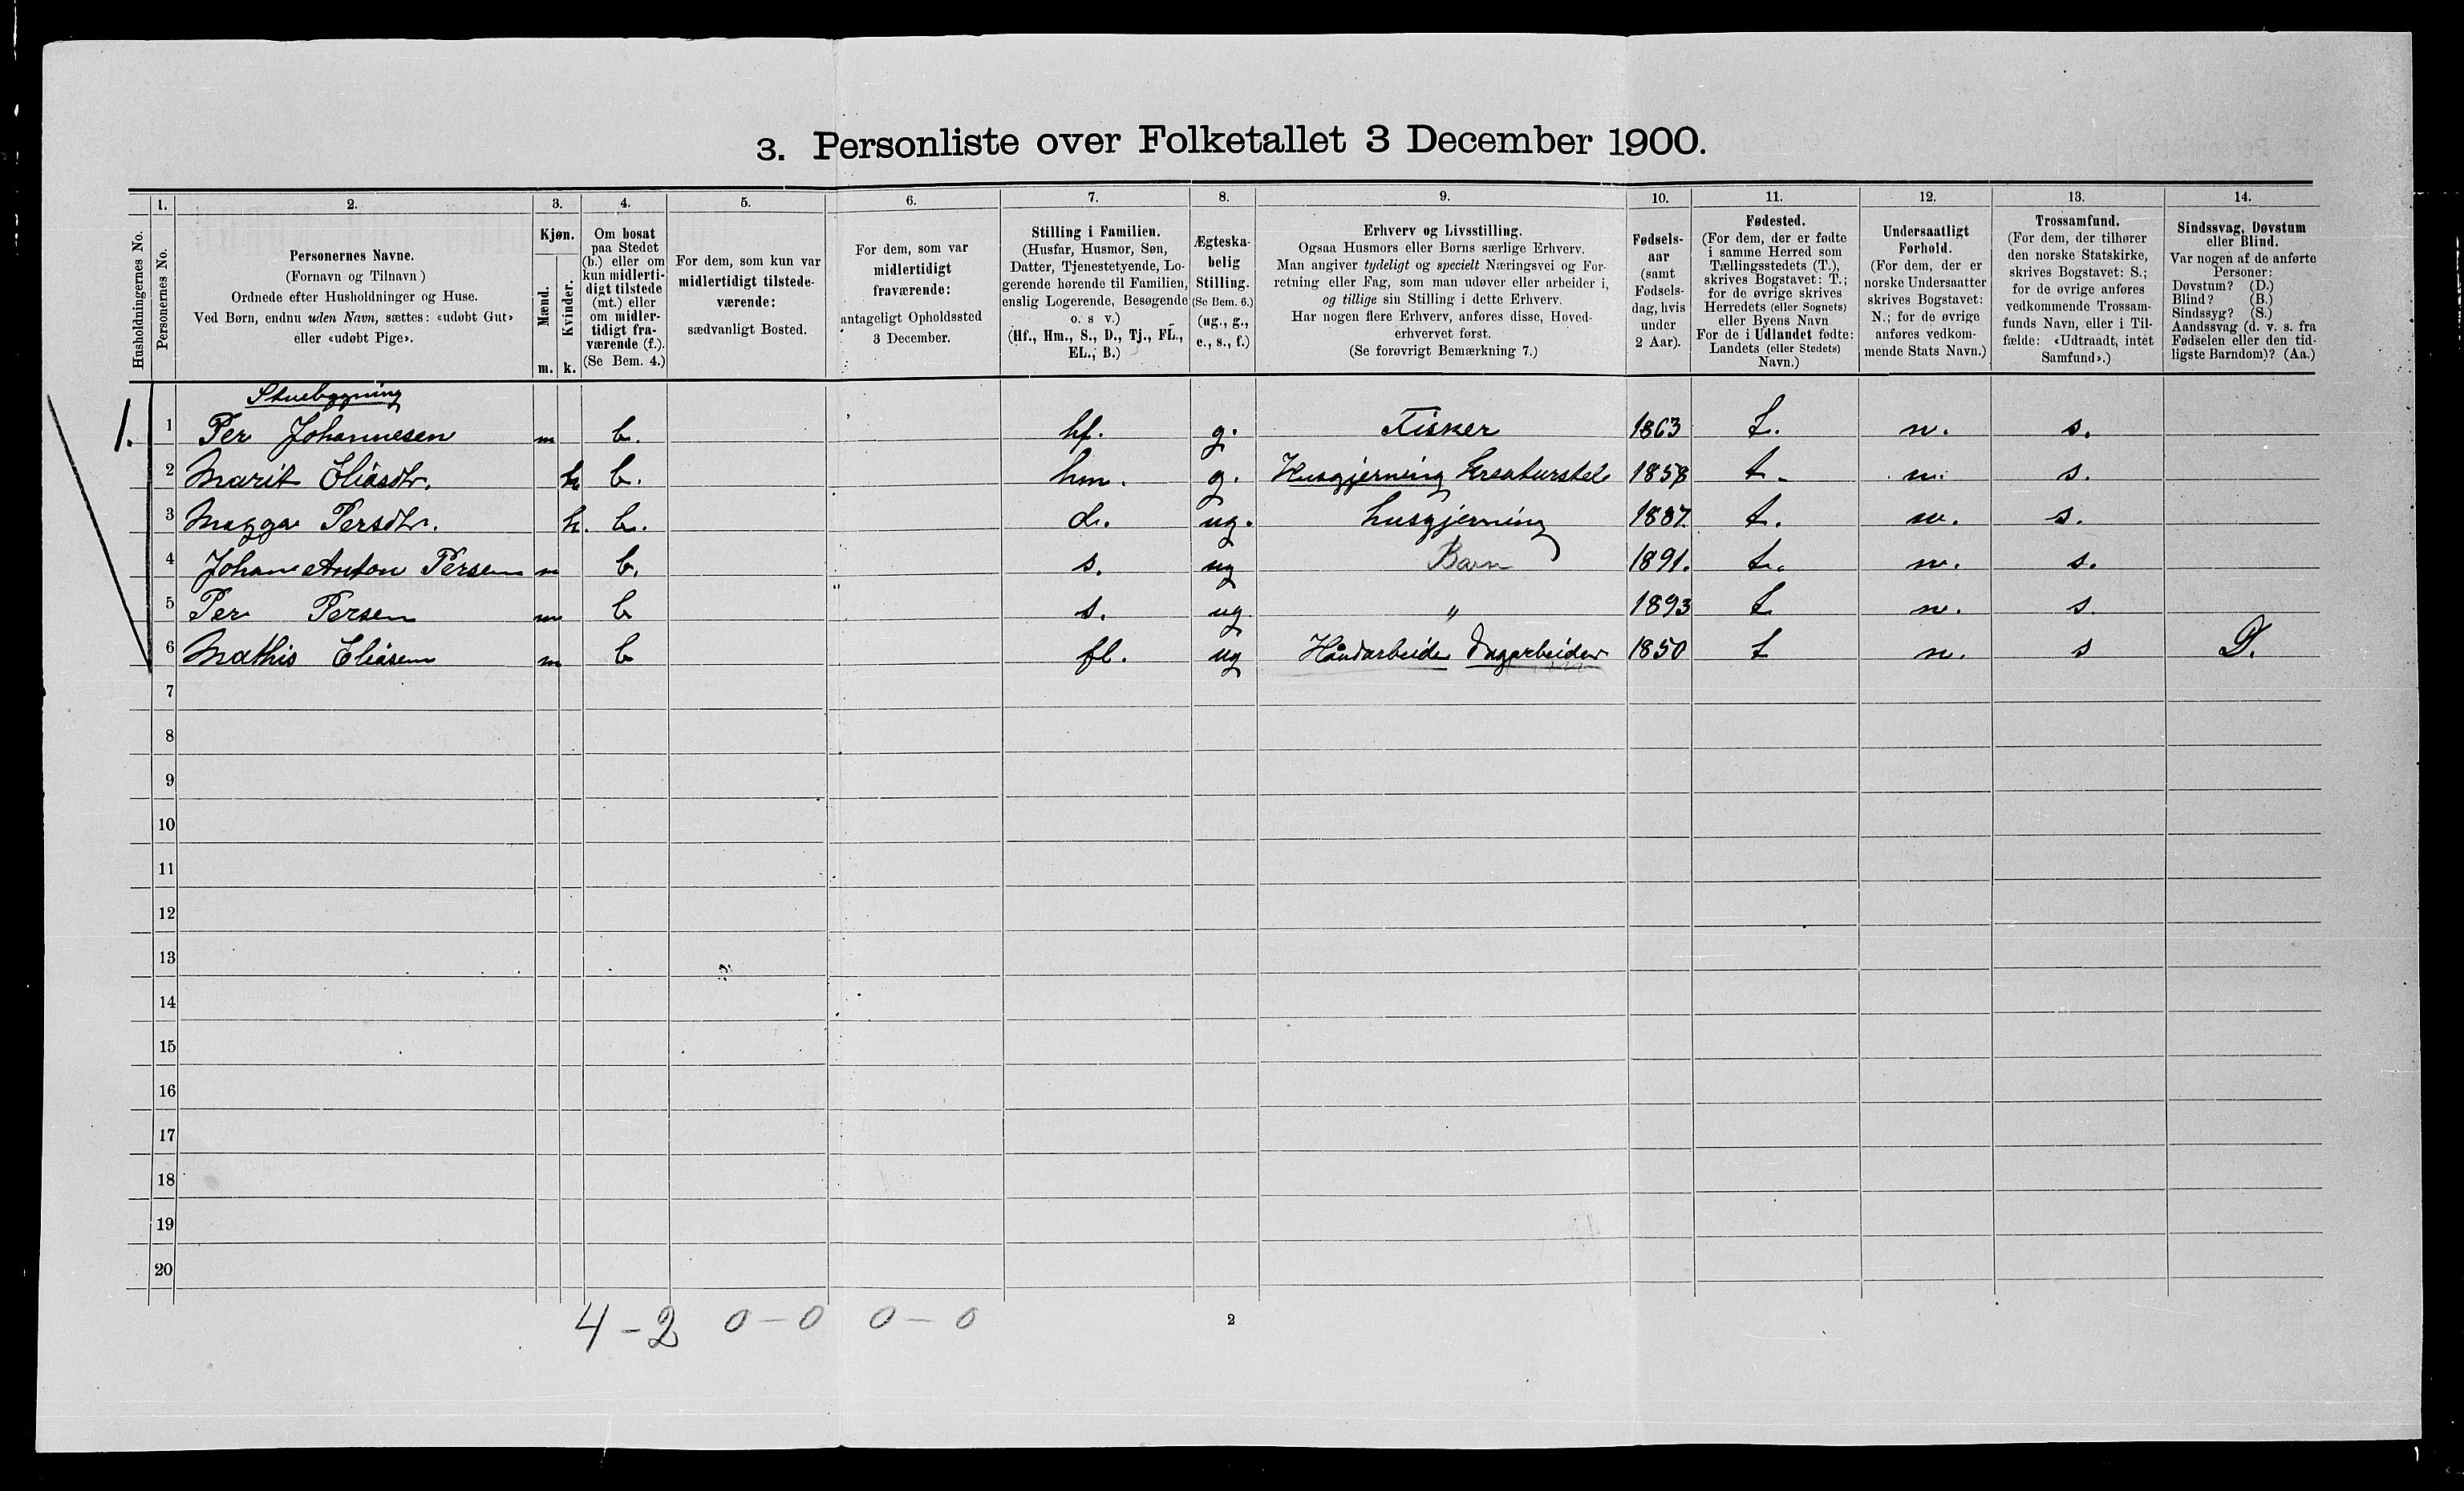 3. Personliste over Folketallet 3 December 1900.
1. 2. 3. 4. 5. 6. 7. 8. 9. 10. 11. 12. 13. 14.
Husholdningernes No.
Personernes No.
Personernes Navne.
(Fornavn og Tilnavn)
Ordnede efter Husholdninger og Huse.
Ved Børn, endnu uden Navn, sættes: «udøbt Gut»
eller «udøbt Pige».
Kjøn.
Mænd.
Kvinder.
m. k.
Om bosat
paa Stedet
(b.) eller om
kun midlerti-
digt tilstede
(mt.) eller
om midler-
tidigt fra-
værende (f.).
(Se Bem. 4.)
For dem, som kun var
midlertidigt tilstede-
værende:
sædvanligt Bosted.
For dem, som var
midlertidigt
fraværende:
antageligt Opholdssted
3 December.
Stilling i Familien.
(Husfar, Husmor, Søn,
Datter, Tjenestetyende, Lo-
gerende hørende til Familien,
enslig Logerende, Besøgende
o. s v.)
(Hf., Hm., S., D., Tj., FL.,
EL., B.)
Ægteska-
belig
Stilling.
(Se Bem. 6.)
(ug., g.,
e., s., f.)
Erhverv og Livsstilling.
Ogsaa Husmors eller Børns særlige Erhverv.
Man angiver tydeligt og specielt Næringsvei og For-
retning eller Fag, som man udøver eller arbeider i,
og tillige sin Stilling i dette Erhverv.
Har nogen flere Erhverv, anføres disse, Hoved-
erhvervet først.
(Se forøvrigt Bemærkning 7.)
Fødsels-
aar
(samt
Fødsels-
dag, hvis
under
2 Aar).
Fødested.
(For dem, der er fødte
i samme Herred som
Tællingsstedets (T.),
skrives Bogstavet: T.;
for de øvrige skrives
Herredets (eller Sognets)
eller Byens Navn
For de i Udlandet fødte:
Landets (eller Stedets)
Navn.)
Undersaatligt
Forhold.
(For dem, der er
norske Undersaatter
skrives Bogstavet:
N.; for de øvrige
anføres vedkom-
mende Stats Navn.)
Trossamfund.
(For dem, der tilhører
den norske Statskirke,
skrives Bogstavet: S.;
for de øvrige anføres
vedkommende Trossam-
funds Navn, eller i Til-
fælde: «Udtraadt, intet
Samfund».)
Sindssvag, Døvstum
eller Blind.
Var nogen af de anførte
Personer:
Døvstum? (D.)
Blind? (B.)
Sindssyg? (S.)
Aandssvag (d. v. s. fra
Fødselen eller den tid-
ligste Barndom)? (Aa.)
Stuebygning
1. 1 Per Johannesen m b. hf. g. Fisker 1863 t. n. s.
2 Marit Eliasdtr. k b. hm. g. Husgjerning kreaturstel 1858 t. n. s.
3 Magga Persdtr. k. b. d. ug. husgjerning 1887. t. n. s.
4 Johan Anton Persen m b. s. ug Barn 1891. t. n. s.
5 Per Persen m b s. ug " 1893 t n. s
6 Mathis Eliasen m b fl. ug Håndarbeide Dagarbeider 1850 t n. s D.
7
8
9
10
11
12
13
14
15
16
17
18
19
20
4 - 2 0 - 0 0 - 0
2